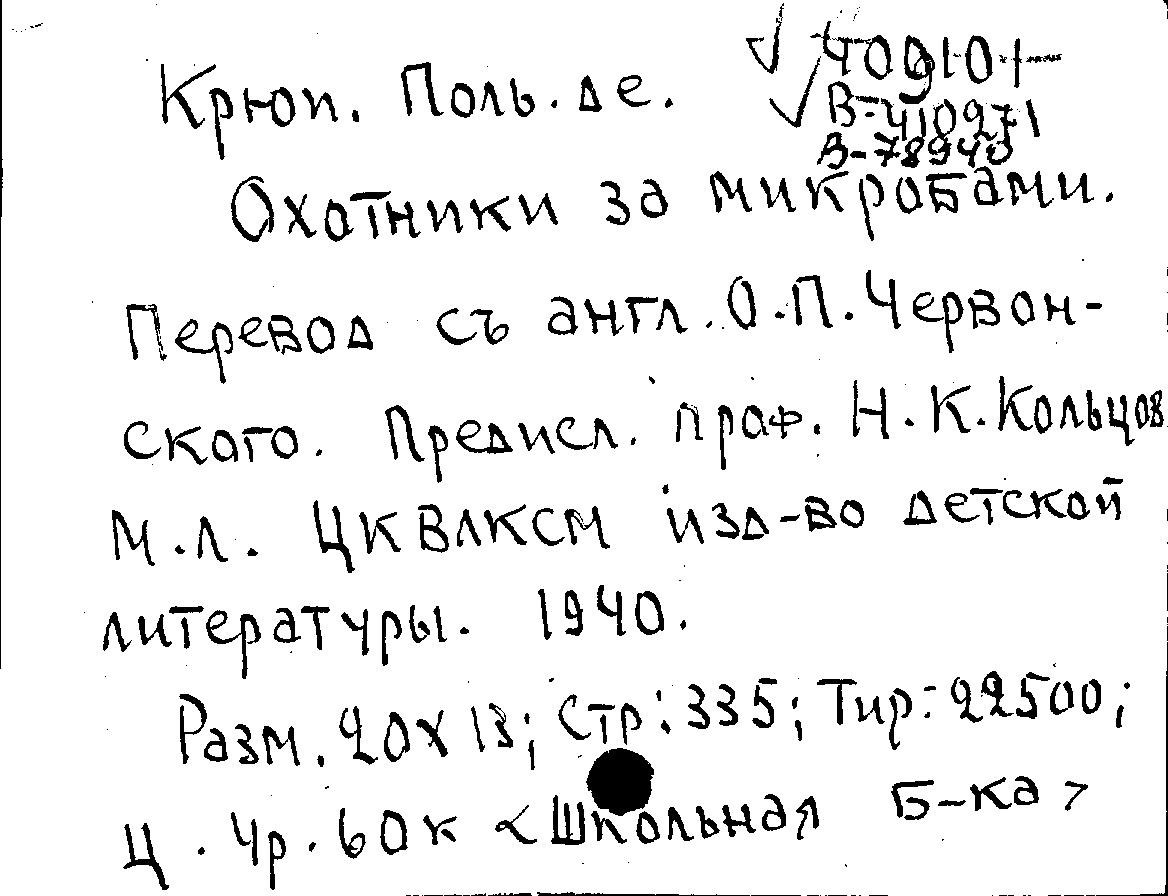 40910 1
Крюи. Поль. де.
В-410971
В-78940
Охотники за микробами.
Перевод съ англ. О.П. Червон-
ского. Предисл. проф. Н.К. Кольцов
М.Л. ЦКВЛКСМ изд-во детской
литературы. 1940.
Разм. 20х13; Стр: 335; Тир: 22500;
Ц. 4р. 60к <Школьная Б-ка>